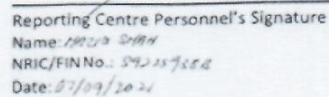 Reporting Centre Personnel's Signature
Name:
NRIC/FIN No.:
Date: 07/09/2021